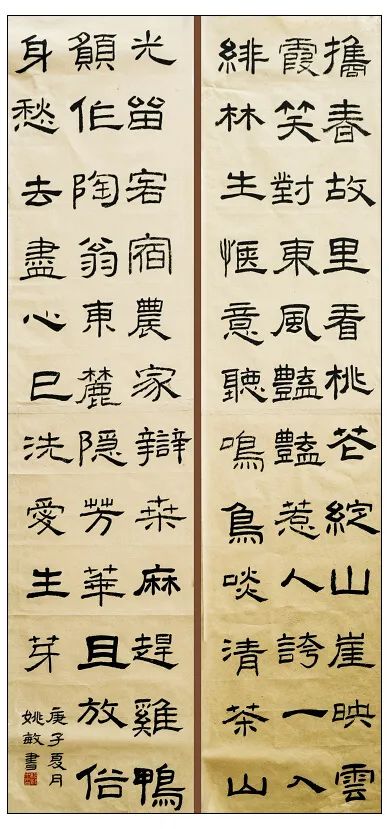 攜春故里看桃花綻山崖映雲
霞笑對東風豔豔惹人誇一入
緋林生愜意聽鳴鳥啖清茶山
光留客宿農家辯桒麻趕雞鴨
願作陶翁東麓隱芳華且放俗
身愁去盡心已洗愛生芽
庚子夏月
姚敏書